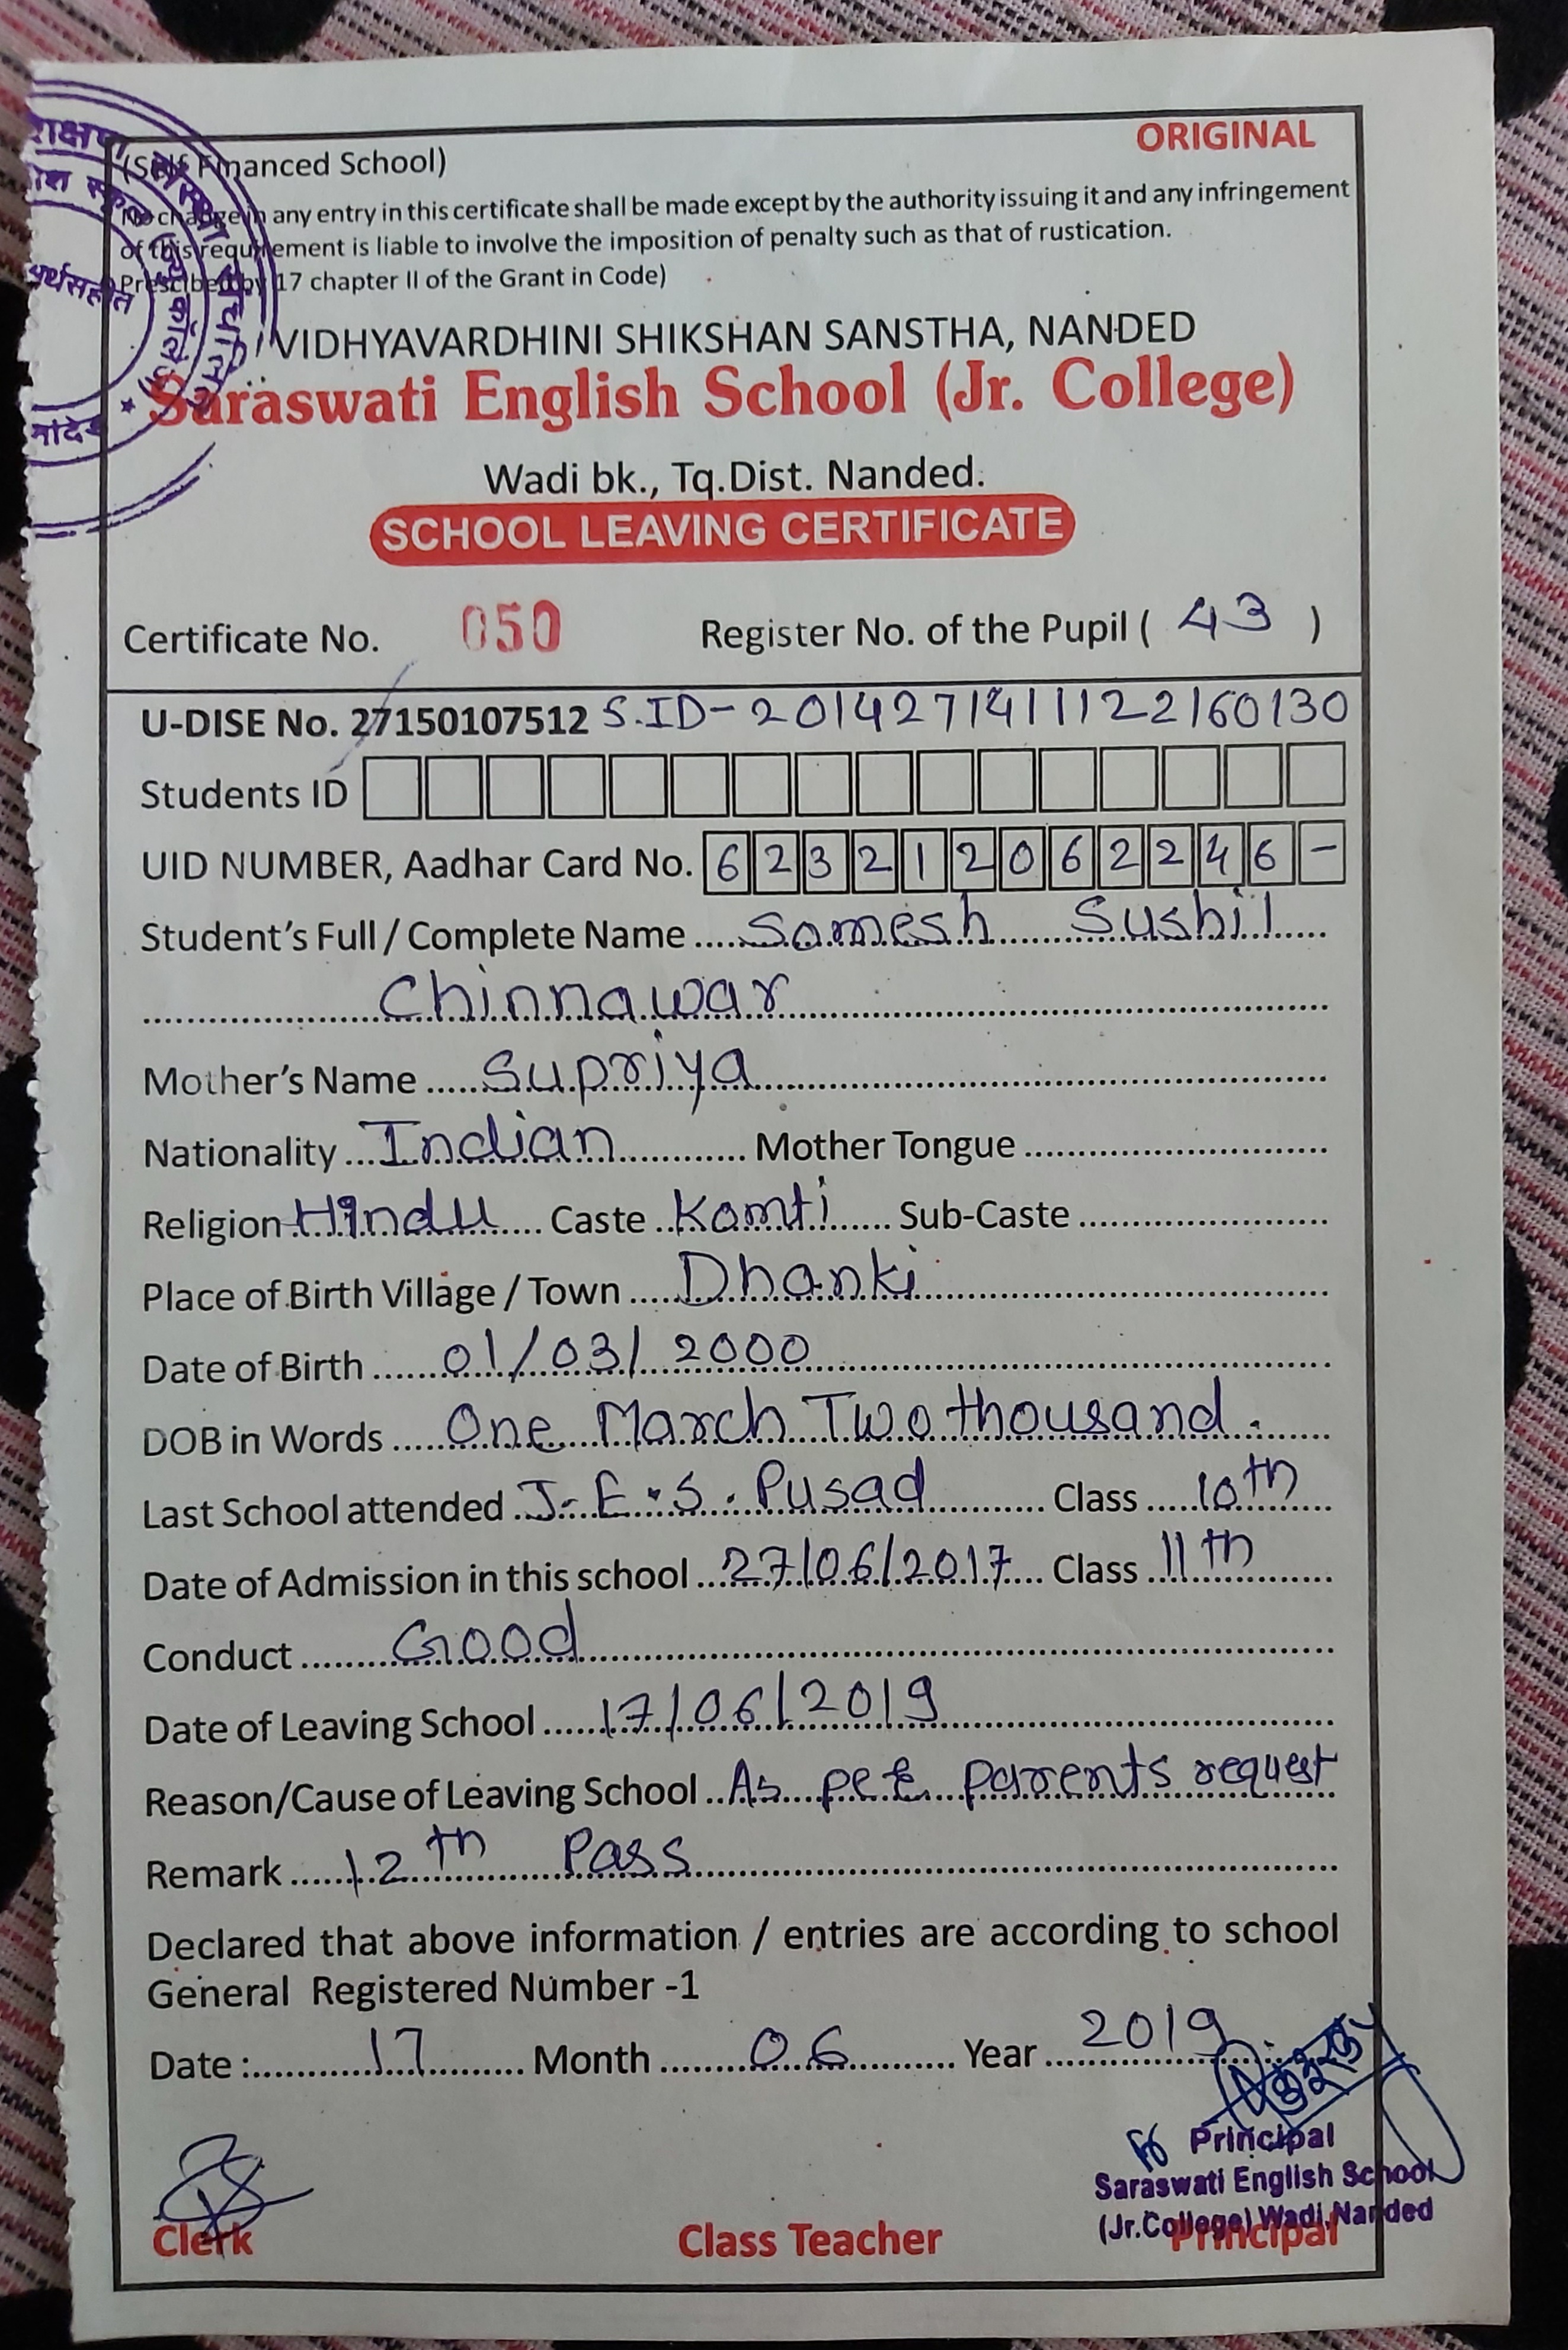 ORIGINAL
(Self Financed School)
No change in any entry in this certificate shall be made except by the authority issuing it and any infringement
of this requirement is liable to involve the imposition of penalty such as that of rustication.
Prescibed by 17 chapter II of the Grant in Code)
VIDHYAVARDHINI SHIKSHAN SANSTHA, NANDED
Saraswati English School (Jr. College)
Wadi bk., Tq.Dist. Nanded.
SCHOOL LEAVING CERTIFICATE
Certificate No. 050 Register No. of the Pupil ( 43 )
U-DISE No. 27150107512 S.ID- 2014271411122160130
Students ID
UID NUMBER, Aadhar Card No. 623212062246-
Student's Full / Complete Name Somesh Sushil
Chinnawar
Mother's Name Supriya
Nationality Indian Mother Tongue
Religion Hindu Caste Komti Sub-Caste
Place of Birth Village / Town Dhanki
Date of Birth 01/03/2000
DOB in Words One March Two thousand.
Last School attended J.E.S. Pusad Class 10th
Date of Admission in this school 27/06/2017 Class 11th
Conduct Good
Date of Leaving School 17/06/2019
Reason/Cause of Leaving School As per parents request
Remark 12th Pass
Declared that above information / entries are according to school
General Registered Number -1
Date : 17 Month 06 Year 2019
Principal
Saraswati English School
(Jr.College) Wadi,Nanded
Clerk Class Teacher Principal